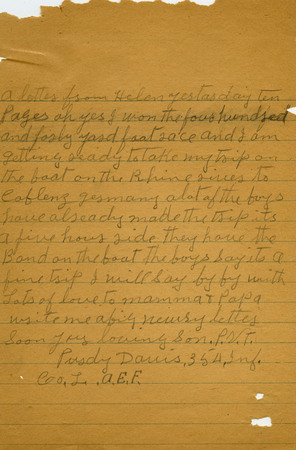 a letter from Helen yestarday ten
Pages oh yes I won the four hundred
and forty yard foot race and I am
getting ready to take my trip on
the boat on the Rhine river to
Coblenz germany a lot of the boys
have already made the trip its
a five hour ride they have the
Band on the boat the boys say its a
fine trip I will say by by with
Lots of love to mamma & Papa
write me a big newsy letter
soon your loving son. P.V.T.
Purdy Davis, 354, Inf.
Co, L. A.E.F.